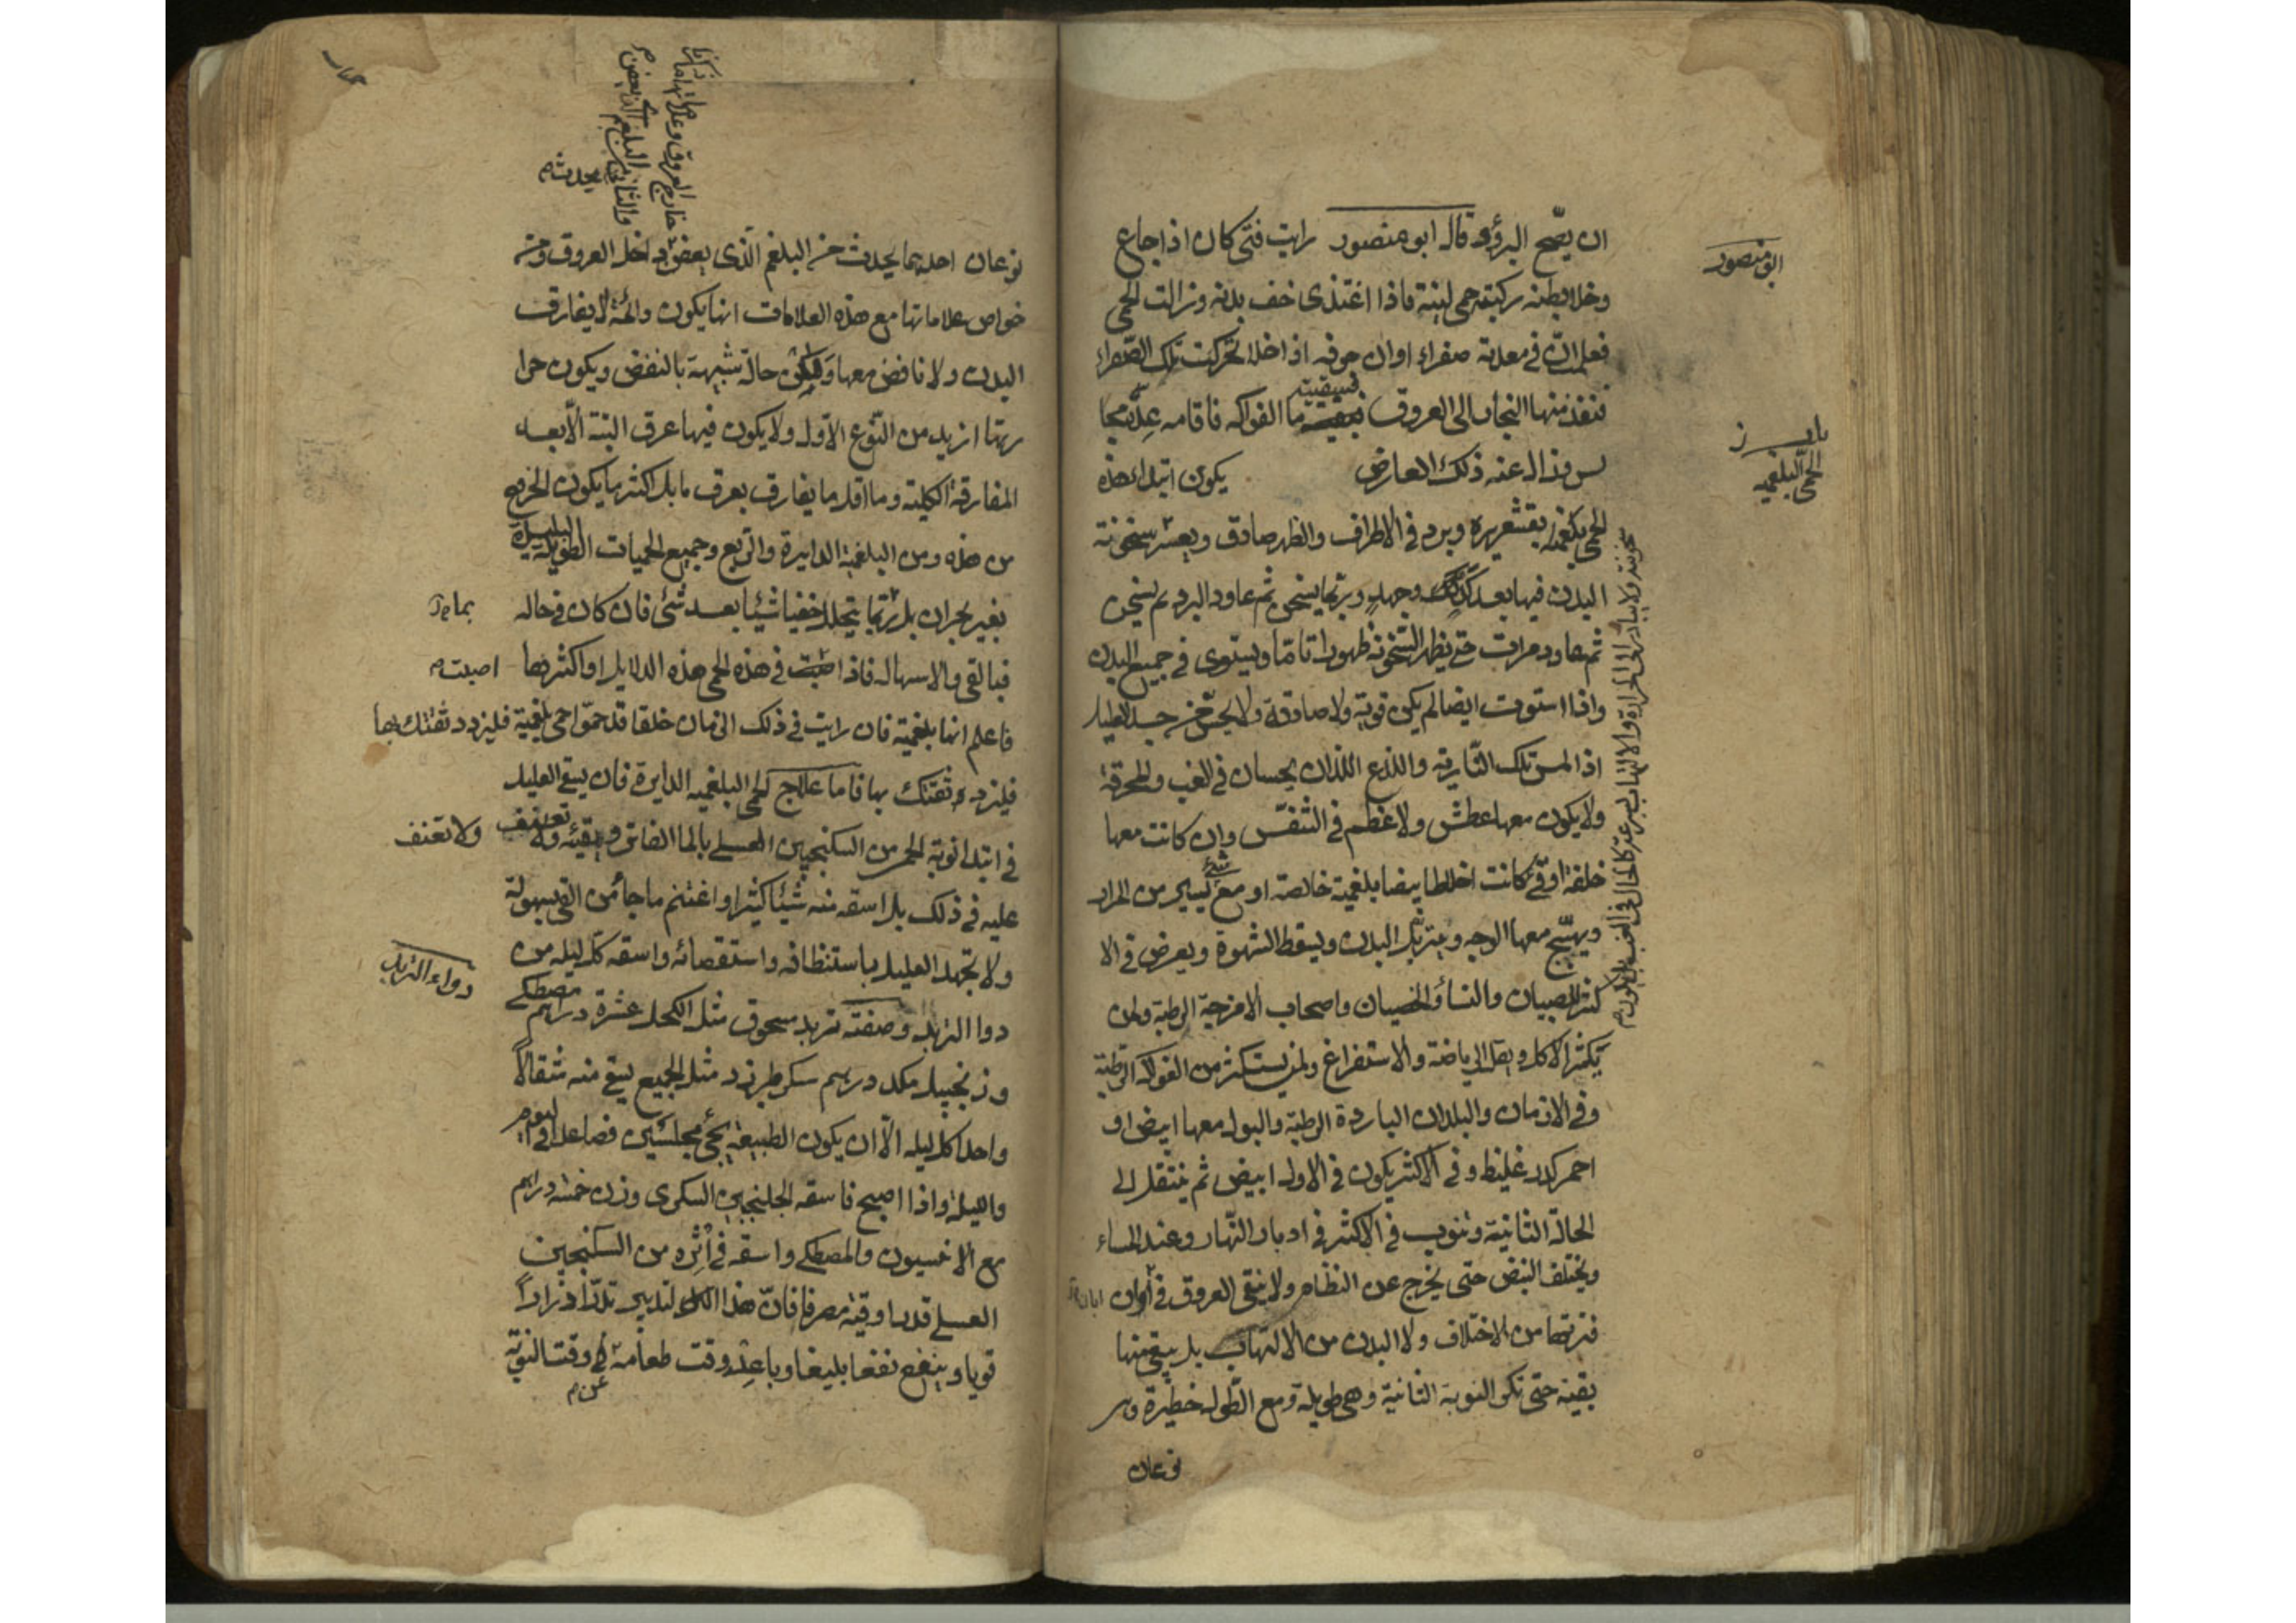 ان يصح البرؤ وقال ابو منصور رايت فتى كان اذا جاع
وخلا بطنه ركبته حمى لينة فاذا اغتذى خف بدنه وزالت الحمى
فعلمت ان فى معدته صفراء وان جوفه اذا خلا تحركت تلك الصفراء
فنفذ منها البخار الى العروق فسقيته ما الفواكه فاقامه عدة مجا
لس وزال عنه ذلك العارض يكون ابتداء هذه
الحمى بقشعريرة وبرد فى الاطراف والظهر صادق ويعسر سخونة
البدن فيها بعد كد وجهد وربما يسخن ثم عاود البرد ثم يسخن
ثم عاود مرات حتى يظهر السخونة ظهورا تاما ويستوى فى جميع البدن
واذا استوت ايضا لم يكن قوية ولا صادقة ولا يحس من جسد العليل
اذا لمس تلك النارية واللذع اللذان يحسان فى الغب والمحرقة
ولا يكون معها عطش ولا عظم فى التنفس وان كانت معها
خلفة او قى كانت اخلاطا بيضا بلغمية خالصة او مع شىء يسير من المرار
ويهيج معها الوجه ويترهل البدن ويسقط الشهوة ويعرض فى الا
كثر للصبيان والنساء والخصيان واصحاب الامزجة الرطبة ولمن
يكثر الاكل ويقل الرياضة والاستفراغ ولمن يستكثر من الفواكه الرطبة
وفى الازمان والبلدان الباردة الرطبة والبول معها ابيض او
احمر كدر غليظ وفى الاكثر يكون فى الاول ابيض ثم ينتقل الى
الحالة الثانية وتنوب فى الاكثر فى ادبار النهار وعند المساء
ويختلف النبض حتى يخرج عن النظام ولا ينقى العروق فى اوان
فترتها من الاختلاف ولا البدن من الالتهاب بل يبقى منها
بقية حتى تكر النوبة الثانية وهى طويلة ومع الطول خطيرة وهى
نوعان
ابو منصور
الحمى البلغميه
نوعان احدهما يحدث من البلغم الذى يعفن داخل العروق ومن
خواص علاماتها مع هذه العلامات انها يكون دائمة لا يفارق
البدن ولا نافض معها ولكن حالة شبيهة بالنفض ويكون حرا
رتها ازيد من النوع الاول ولا يكون فيها عرق البتة الا بعد
المفارقة الكلية وما اقل ما يفارق بعرق ما بل اكثر ما يكون الخروج
من هذه ومن البلغمية الدايرة والربع وجميع الحميات الطويلة
بغير بحران بل ربما يتحلل خفيا شيئا بعد شىء فان كان فى حاله
فبالقى والاسهال فاذا اصبت فى هذه الحمى هذه الدلايل او اكثرها
فاعلم انها بلغمية فان رايت فى ذلك الزمان خلقا قد حموا حمى بلغمية فليزدد ثقتك بها
فليزدد ثقتك بها فاما علاج الحمى البلغميه الدايرة فان يسقى العليل
فى ابتدا نوبة الحمى من السكنجبين العسلى بالما الفاتر ويقيئه ولا تعنف
عليه فى ذلك بل اسقه منه شيئا كثيرا واغتنم ما جا من القى بسهولة
ولا تجهد العليل باستنظافه واستقصائه واسقه كل ليله من
دوا التربد وصفته تربد مسحوق مثل الكحل عشرة دراهم مصطكى
وزنجبيل مكد درهم سكر طبرزد مثل الجميع يسقى منه مثقالا
واحدا كل ليله الا ان يكون الطبيعة يجئ مجلسين فصاعدا فى اليوم
والليلة واذا اصبح فاسقه الجلنجبين السكرى وزن خمسة دراهم
مع الانيسون والمصطكى واسقه فى اثره من السكنجبين
العسلى قدر اوقية مصرفا فان هذا التدبير
قويا وينفع نفعا بليغا وباعد وقت طعامه عن وقت النوبة
اصبت
ولا تعنف
دواء التربد